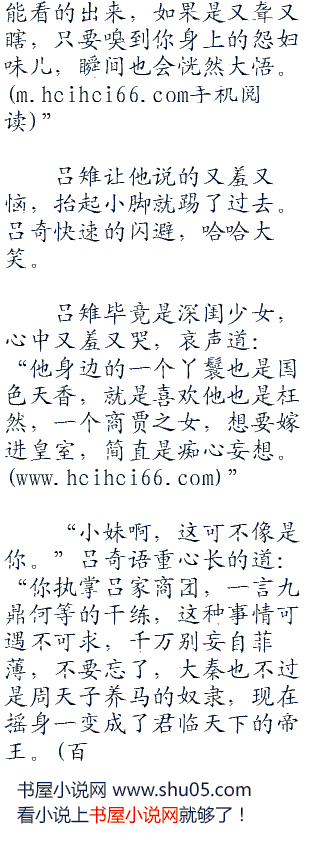 能看的出来，如果是又聋又
瞎，只要嗅到你身上的怨妇
味儿，瞬间也会恍然大悟。
(m.hcihci66.com手机阅
读)”
吕雉让他说的又羞又
恼，抬起小脚就踢了过去。
吕奇快速的闪避，哈哈大
笑。
吕雉毕竟是深闺少女，
心中又羞又哭，哀声道：
“他身边的一个丫鬟也是国
色天香，就是喜欢他也是枉
然，一个商贾之女，想要嫁
进皇室，简直是痴心妄想。
(www.hcihci66.com)”
“小妹啊，这可不像是
你。”吕奇语重心长的道：
“你执掌吕家商团，一言九
鼎何等的干练，这种事情可
遇不可求，千万别妄自菲
薄，不要忘了，大秦也不过
是周天子养马的奴隶，现在
摇身一变成了君临天下的帝
王。(百
书屋小说网 www.shu05.com
看小说上书屋小说网就够了！